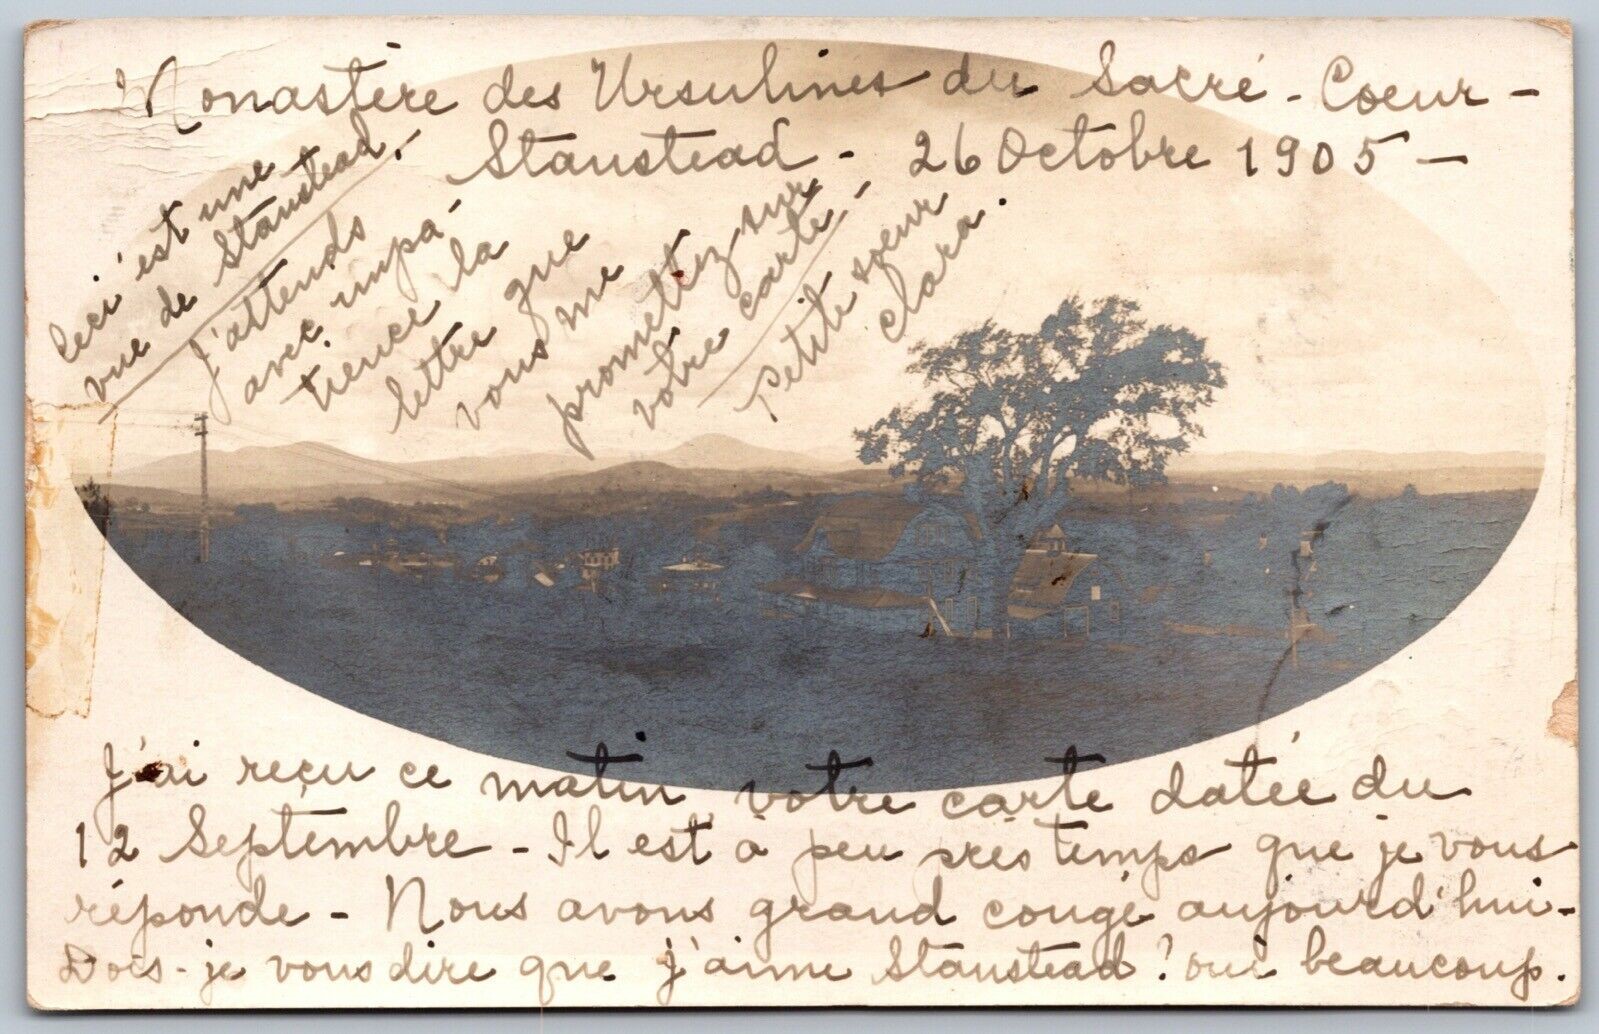 Monastère des Ursulines du Sacré-Coeur-
Stanstead - 26 Octobre 1905 -
Ceci est une
vue de Stanstead.
J'attends
avec impa-
tience la
lettre que
vous me
promettez sur
votre carte, -
Petite soeur
Clara.
J'ai reçu ce matin votre carte datée du
12 Septembre - Il est à peu près temps que je vous
réponde - Nous avons grand congé aujourd'hui-
Dois-je vous dire que j'aime Stanstead? oui beaucoup.